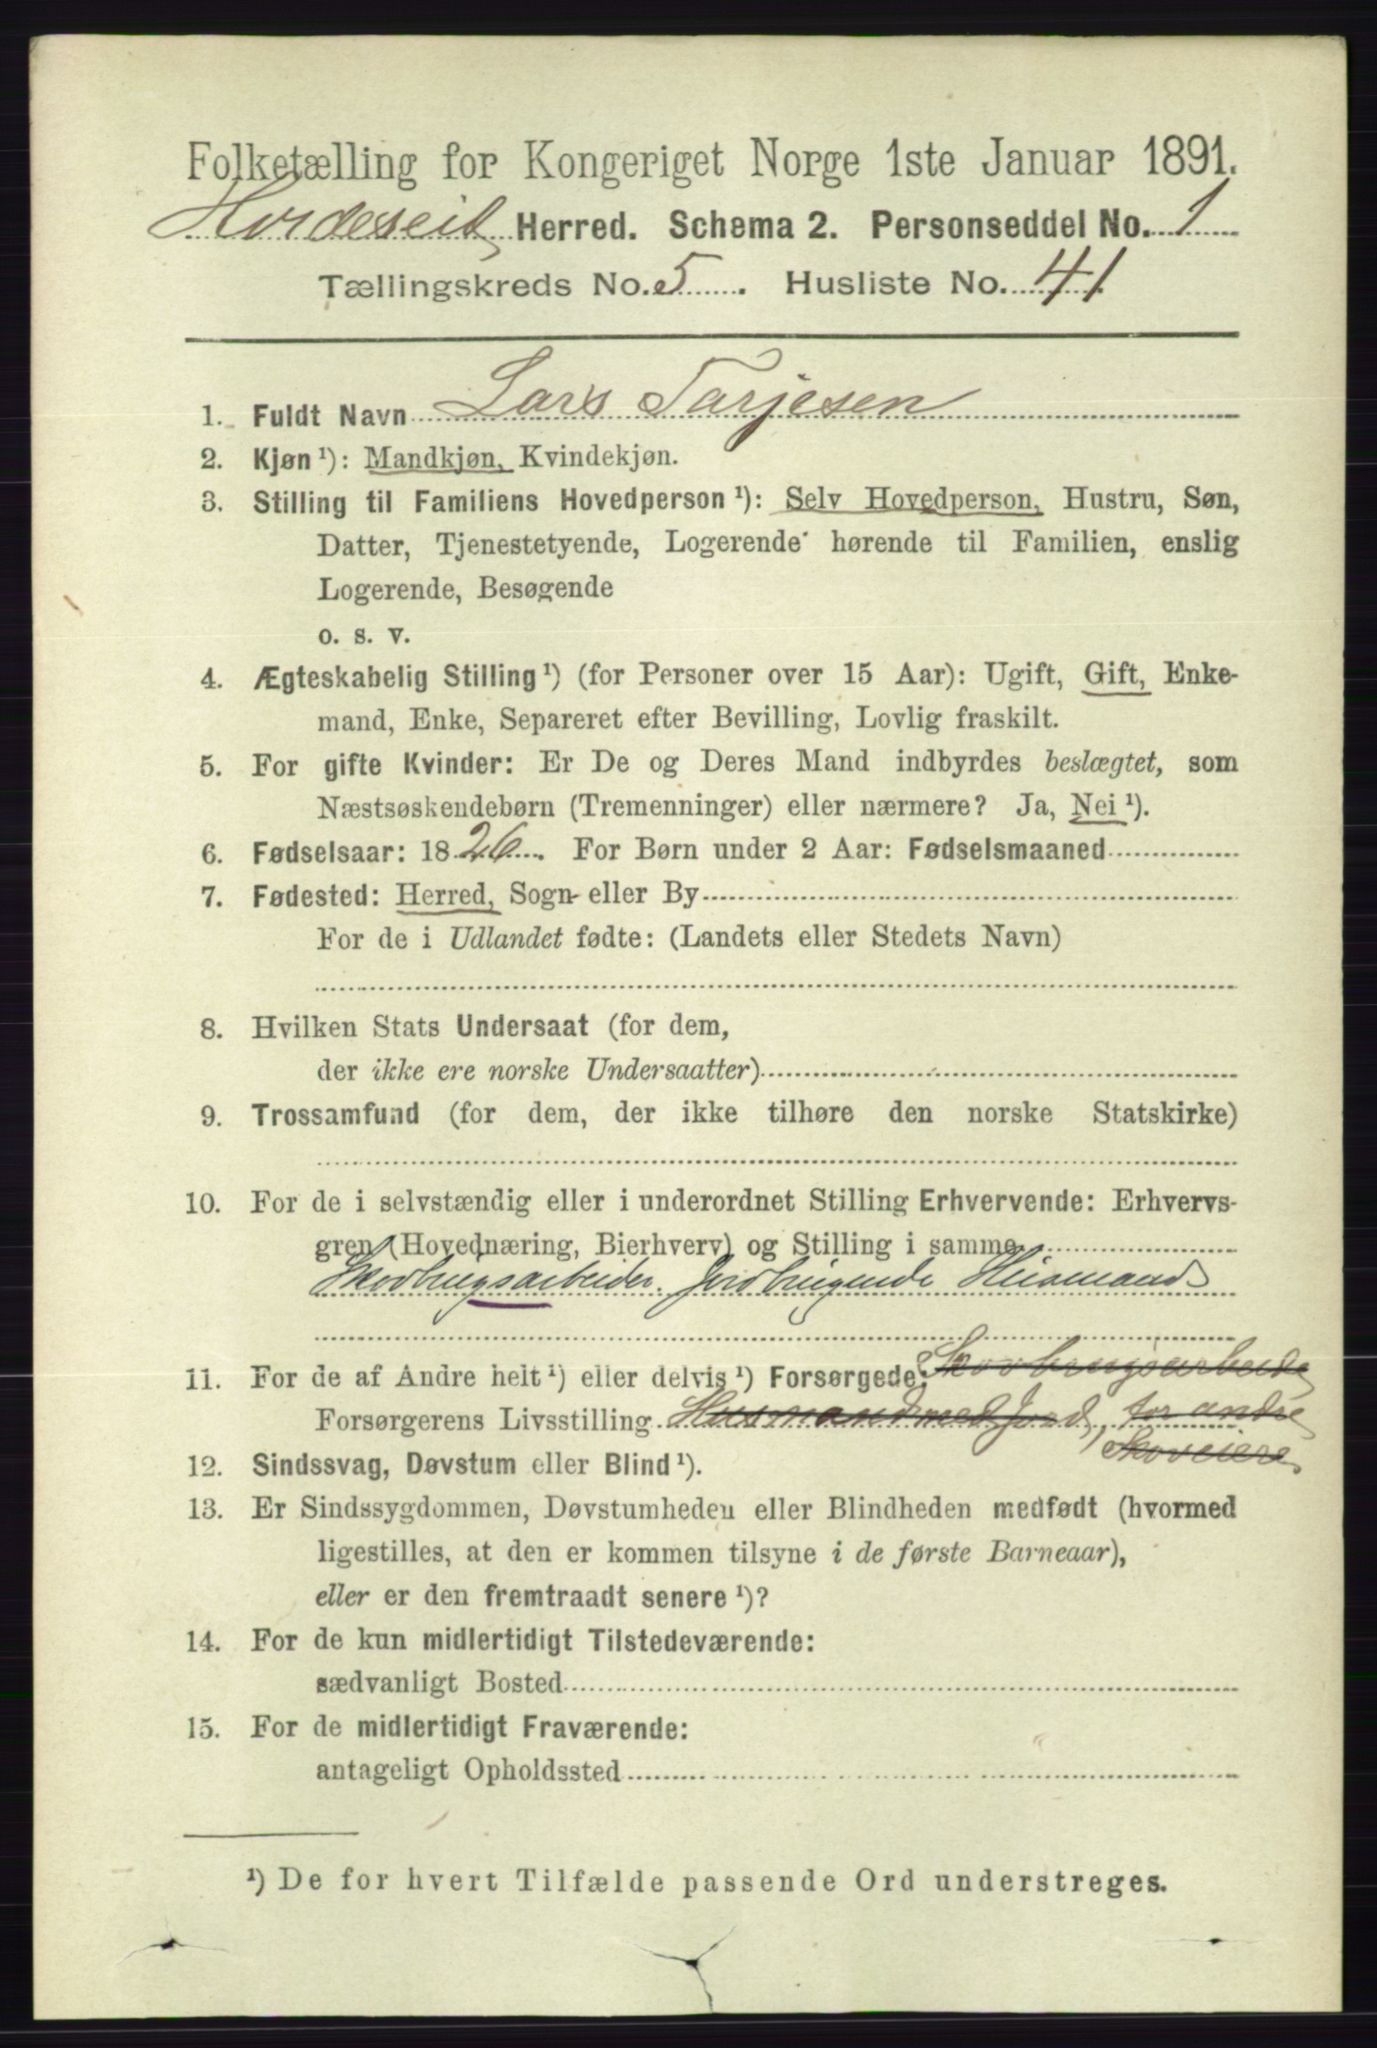 Folketælling for Kongeriget Norge 1ste Januar 1891.
Hvideseid Herred. Schema 2. Personseddel No. 1
Tællingskreds No. 5. Husliste No. 41
1. Fuldt Navn Lars Tarjesen
2. Kjøn ¹): Mandkjøn, Kvindekjøn.
3. Stilling til Familiens Hovedperson ¹): Selv Hovedperson, Hustru, Søn,
Datter, Tjenestetyende, Logerende hørende til Familien, enslig
Logerende, Besøgende
o. s. v.
4. Ægteskabelig Stilling ¹) (for Personer over 15 Aar): Ugift, Gift, Enke-
mand, Enke, Separeret efter Bevilling, Lovlig fraskilt.
5. For gifte Kvinder: Er De og Deres Mand indbyrdes beslægtet, som
Næstsøskendebørn (Tremenninger) eller nærmere? Ja, Nei ¹).
6. Fødselsaar: 1826. For Børn under 2 Aar: Fødselsmaaned
7. Fødested: Herred, Sogn eller By
For de i Udlandet fødte: (Landets eller Stedets Navn)
8. Hvilken Stats Undersaat (for dem,
der ikke ere norske Undersaatter)
9. Trossamfund (for dem, der ikke tilhøre den norske Statskirke)
10. For de i selvstændig eller i underordnet Stilling Erhvervende: Erhvervs-
gren (Hovednæring, Bierhverv) og Stilling i samme
Skovbrugsarbeider. Jordbrugende Husmand
11. For de af Andre helt ¹) eller delvis ¹) Forsørgede: Skovbrugsarbeide
Forsørgerens Livsstilling Husmand med Jord, for andre
Skoveiere
12. Sindssvag, Døvstum eller Blind ¹).
13. Er Sindssygdommen, Døvstumheden eller Blindheden medfødt (hvormed
ligestilles, at den er kommen tilsyne i de første Barneaar),
eller er den fremtraadt senere ¹)?
14. For de kun midlertidigt Tilstedeværende:
sædvanligt Bosted
15. For de midlertidigt Fraværende:
antageligt Opholdssted
¹) De for hvert Tilfælde passende Ord understreges.